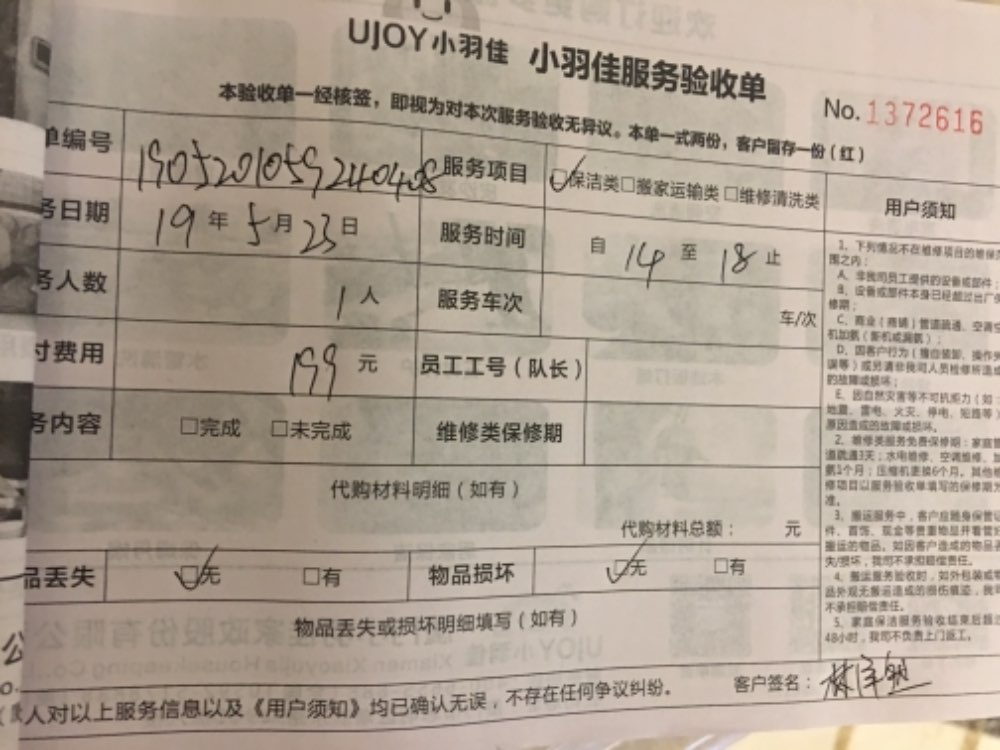 UJOY小羽佳 小羽佳服务验收单
本验收单一经核签，即视为对本次服务验收无异议。本单一式两份，客户留存一份（红）
No. 1372616
单编号 1905201059240408 服务项目 ☑保洁类□搬家运输类□维修清洗类
务日期 19年5月23日 服务时间 自14至18止
务人数 1人 服务车次 车/次
付费用 199元 员工工号（队长）
务内容 □完成 □未完成 维修类保修期
代购材料明细（如有）
代购材料总额： 元
品丢失 ☑无 □有 物品损坏 ☑无 □有
物品丢失或损坏明细填写（如有）
人对以上服务信息以及《用户须知》均已确认无误，不存在任何争议纠纷。 客户签名：
用户须知
1、下列情况不在维修项目的维保范
围之内：
A、非我司员工提供的设备或部件；
B、设备或部件本身已经超过出厂保
修期；
C、商业（商铺）管道疏通、空调空
机加氨（新机或漏氨）；
D、因客户行为（擅自装卸、操作失
误等）或另请非我司人员检修所造成
的故障或损坏；
E、因自然灾害等不可抗能力（如：
地震、雷电、火灾、停电、短路等）
原因造成的故障或损坏。
2、维修类服务免费保修期：家庭管
道疏通3天；水电维修、空调维修、加
氨1个月；压缩机更换6个月。其他维
修项目以服务验收单填写的保修期为
准。
3、搬运服务中，客户应随身保管证
件、首饰、现金等贵重物品并看管好
搬运的物品。如因客户造成的物品丢
失/损坏，我司不承担赔偿责任。
4、搬运服务验收时，如外包装或物
品外观无搬运造成的损伤痕迹，我司
不承担赔偿责任。
5、家庭保洁服务验收结束后超过
48小时，我司不负责上门返工。